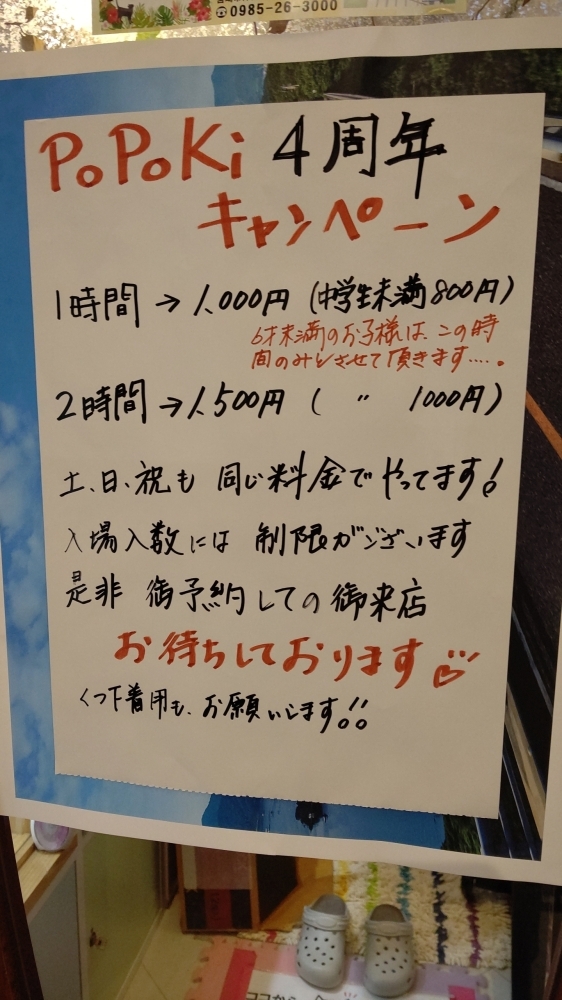 ☎0985-26-3000
PoPoKi 4周年
キャンペーン
1時間 → 1,000円 (中学生未満800円)
6才未満のお子様は、この時
間のみとさせて頂きます....。
2時間 → 1,500円 ( 〃 1000円)
土、日、祝も 同じ料金でやってます!
入場入数には 制限がございます
是非 御予約しての御来店
お待ちしております♡
くつ下着用も、お願いします!!
ココから